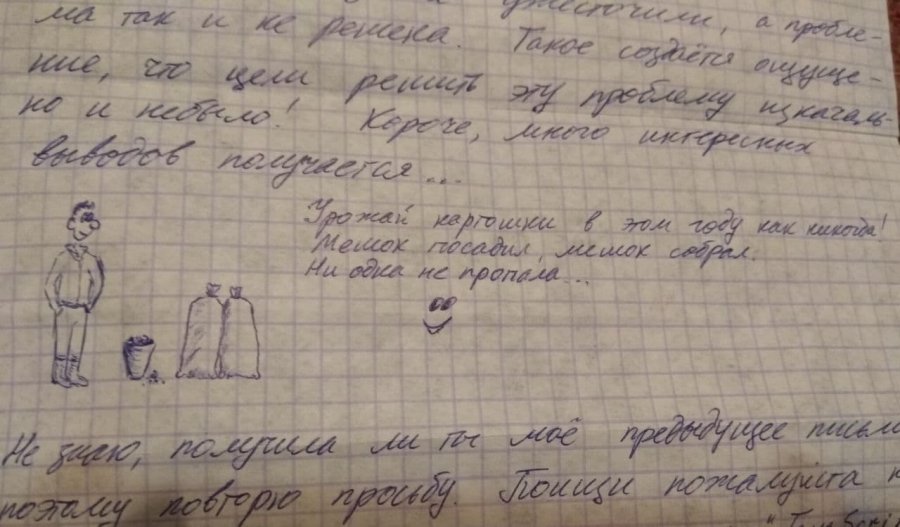 ужесточили, а пробле-
ма так и не решена. Такое создаётся ощуще-
ние, что цели решить эту проблему изначаль-
но и небыло! Короче, много интересных
выводов получается...
Урожай картошки в этом году как никогда!
Мешок посадил, мешок собрал.
Ни одна не пропала...
Не знаю, получила ли ты моё предыдущее письмо
поэтому повторю просьбу. Поищи пожалуйста